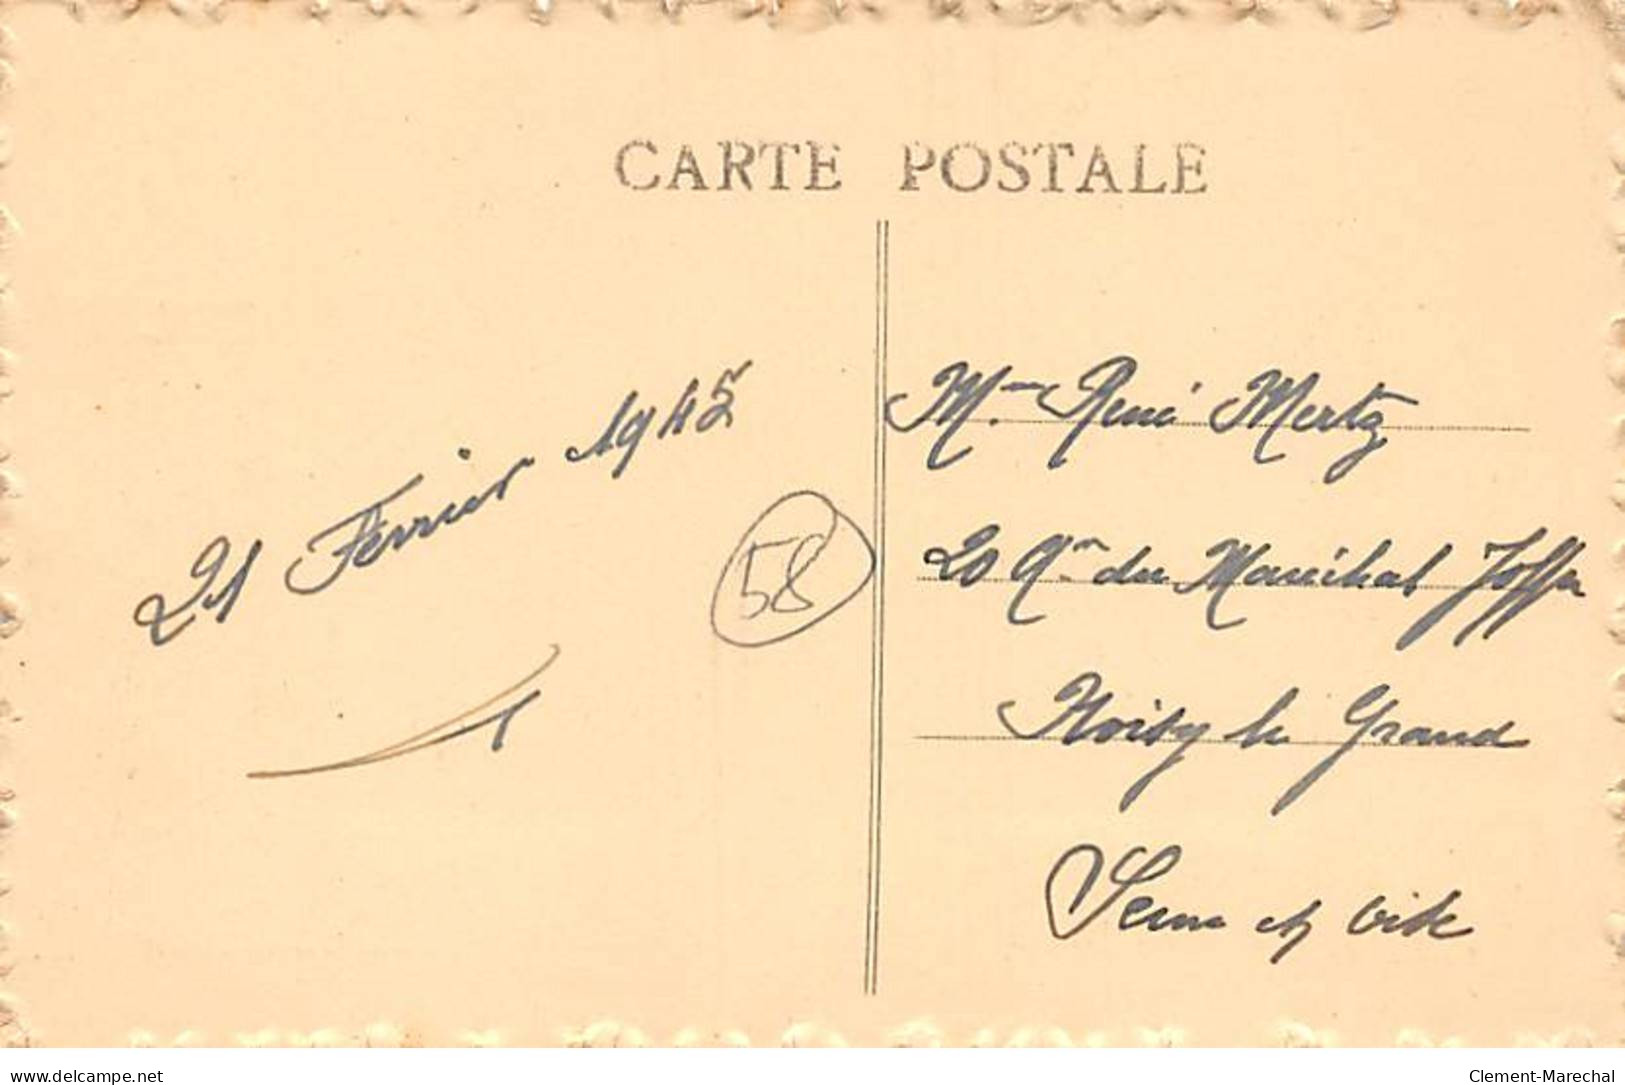 CARTE POSTALE
21 Fevrier 1945
58
Mme René Mertz
20 Av. du Maréchal Joffre
Noisy le Grand
Seine et Oise
delcampe.net
Clement-Marechal